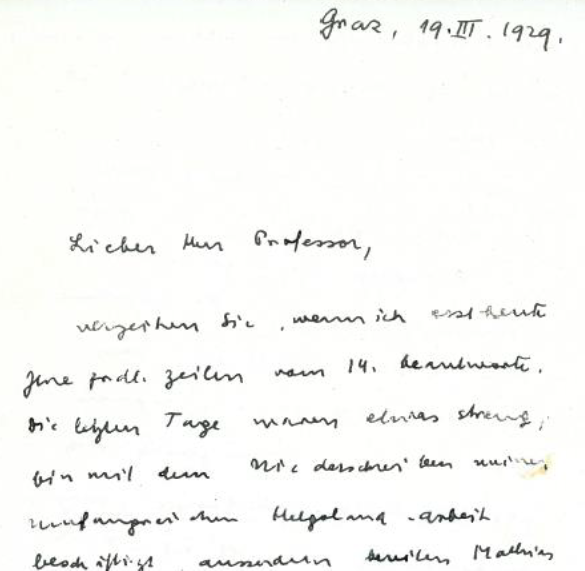 Graz, 19.III.1929.
Lieber Herr Professor,
verzeihen Sie, wenn ich erst heute
Ihre frdl. Zeilen vom 14. beantworte.
Die letzten Tage waren etwas streng,
bin mit dem Niederschreiben meiner
umfangreichen Helgoland-Arbeit
beschäftigt, ausserdem Mathias